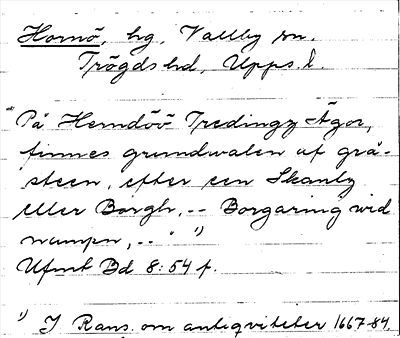 Hornö, hg, Vallby sn.
Trögds hd, Upps. l.
"På Hemdöö Tredingz Ägor,
finnes grundwalen af grå-
steen, efter een Skantz
eller Borgh, -- Borgaring wid
nampn, -- " 1)
Ufmt Bd 8:54 f.
1) I Rans. om antiqviteter 1667-84.